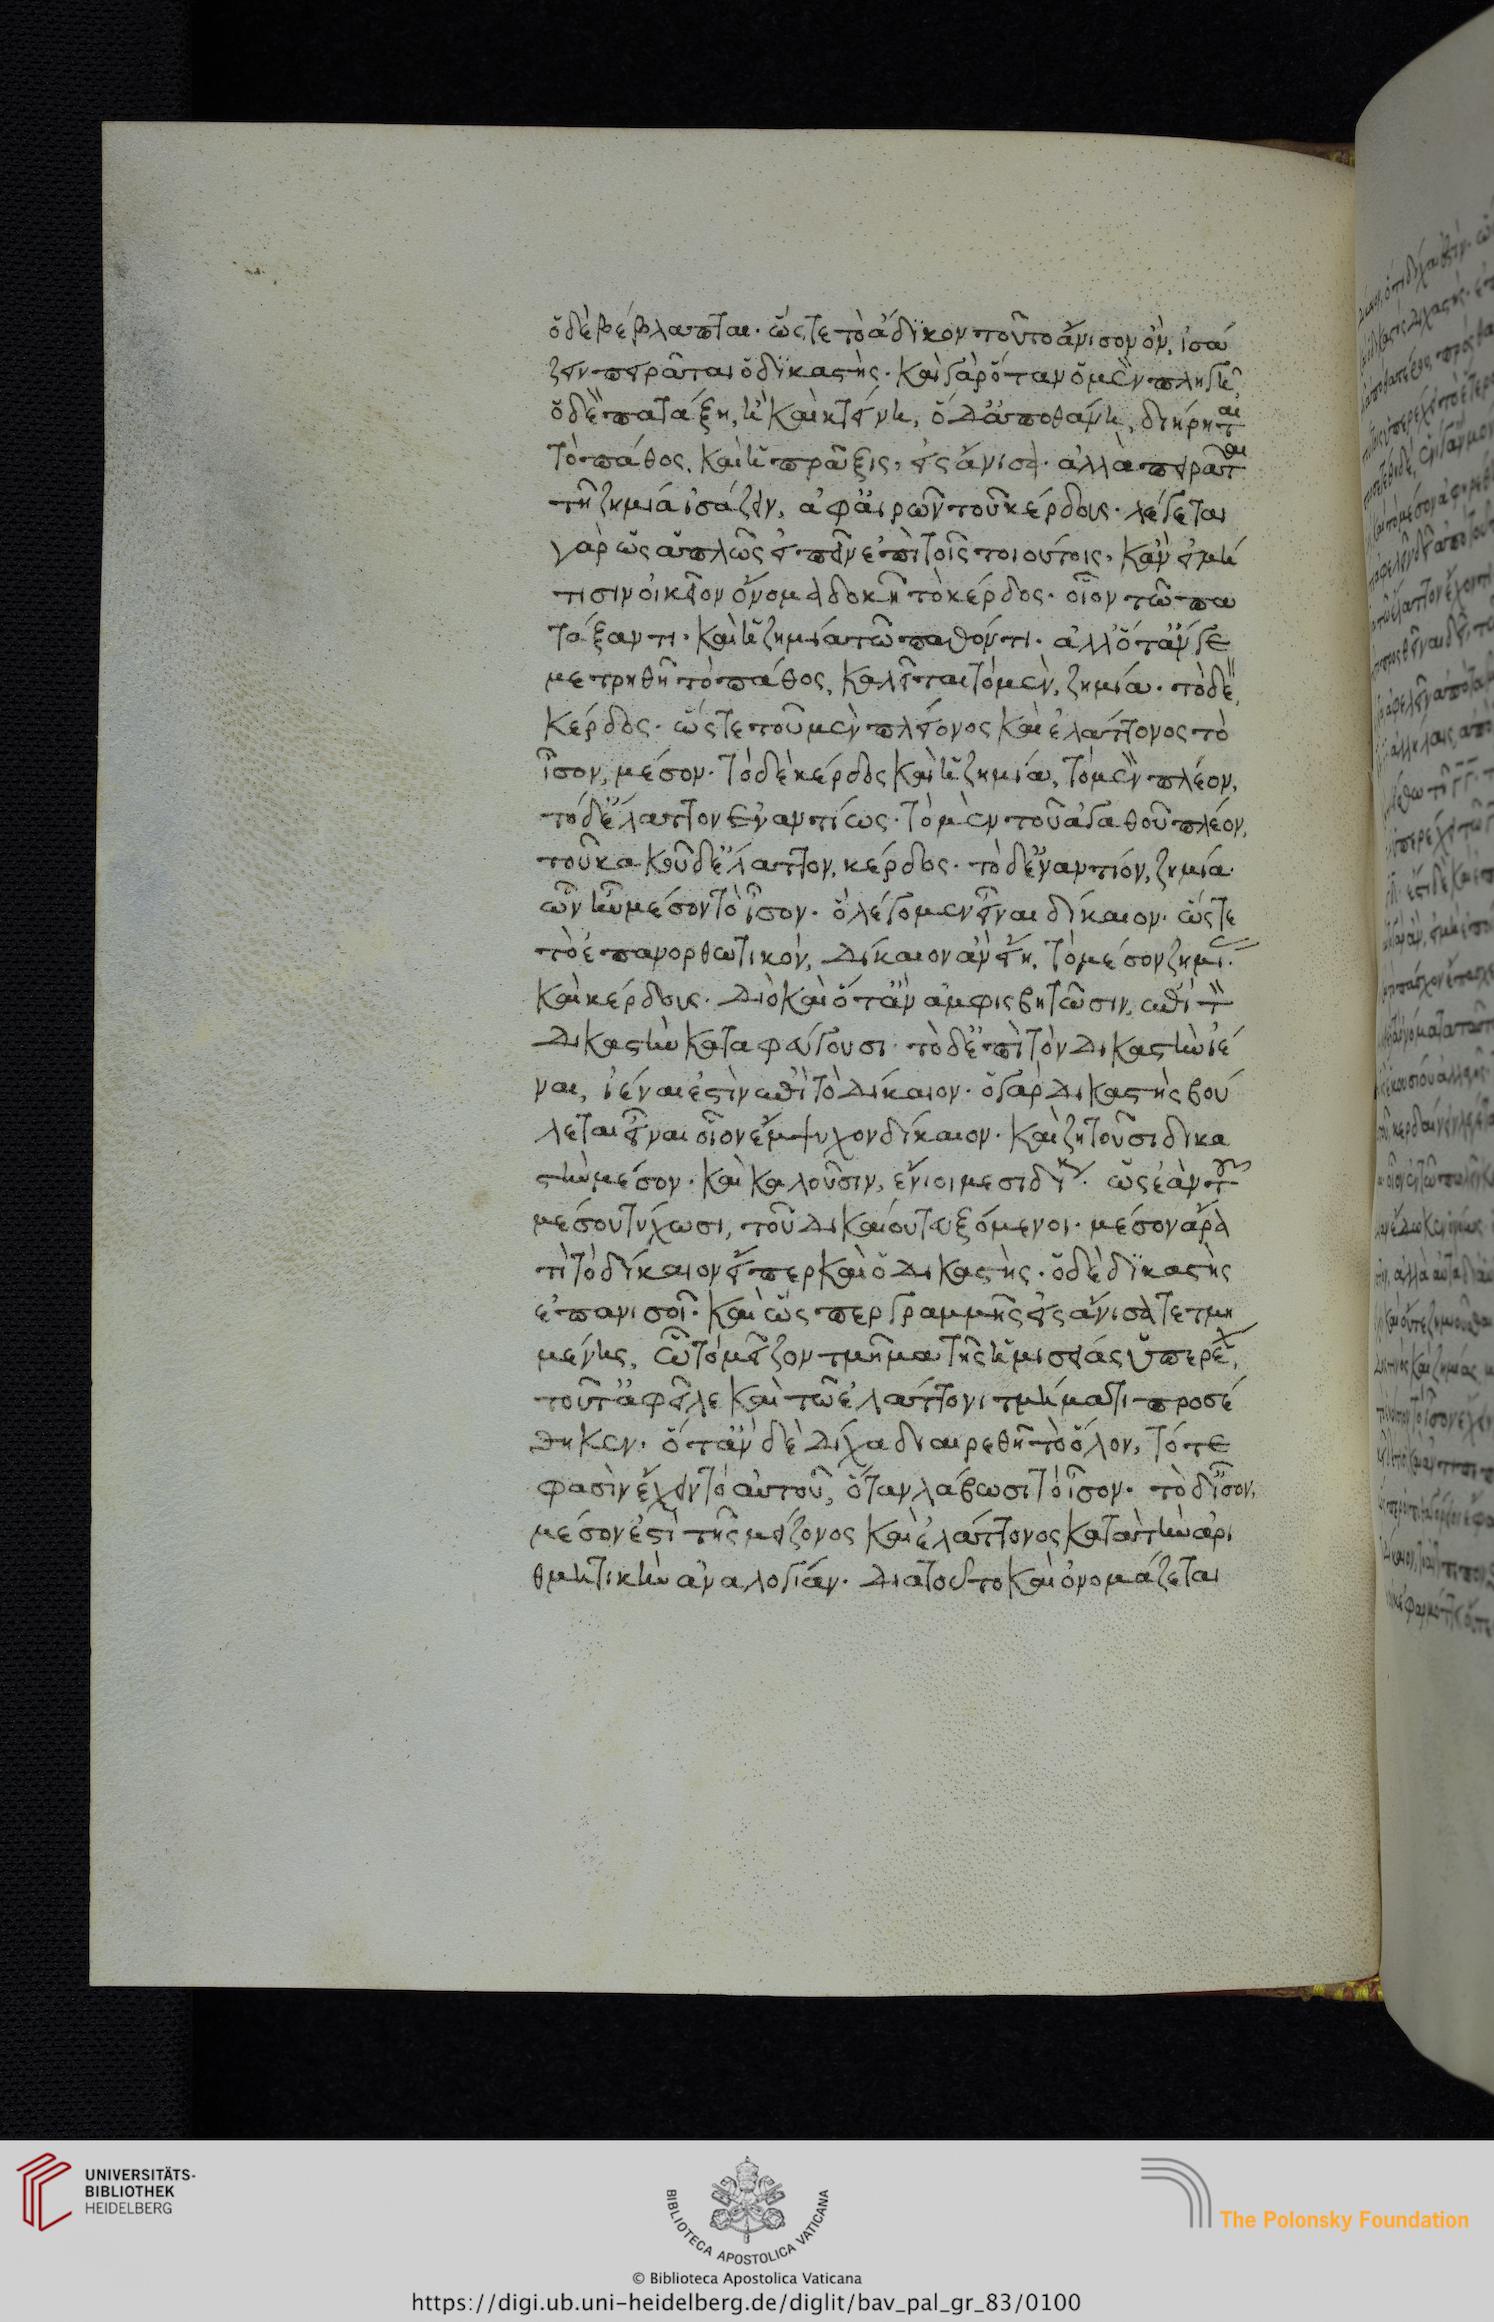 ὁ δὲ βέβλαπται· ὥστε τὸ ἄδικον τοῦτο ἄνισον ὂν, ἰσά
ζειν πειρᾶται ὁ δικαστής· καὶ γὰρ ὅταν ὁ μὲν πληγῆ,
ὁ δὲ πατάξη, ἢ καὶ κτείνη, ὁ δ' ἀποθάνη, διήρηται
τὸ πάθος, καὶ ἡ πρᾶξις, εἰς ἄνισα· ἀλλὰ πειρᾶται
τῆ ζημία ἰσάζειν, ἀφαιρῶν τοῦ κέρδους· λέγεται
γὰρ ὡς ἁπλῶς εἰπεῖν ἐπὶ τοῖς τοιούτοις, κἂν εἰ μή
τισιν οἰκεῖον ὄνομα δοκῆ τὸ κέρδος· οἷον τῶ πα
τάξαντι· καὶ ἡ ζημία τῶ παθόντι· ἀλλ' ὅταν γε
μετρηθῆ τὸ πάθος, καλεῖται τὸ μὲν, ζημία· τὸ δὲ,
κέρδος· ὥστε τοῦ μὲν πλείονος καὶ ἐλάττονος τὸ
ἴσον, μέσον· τὸ δὲ κέρδος καὶ ἡ ζημία, τὸ μὲν πλέον,
τὸ δ' ἔλαττον ἐναντίως· τὸ μὲν τοῦ ἀγαθοῦ πλέον,
τοῦ κακοῦ δ' ἔλαττον, κέρδος· τὸ δ' ἐναντίον, ζημία·
ὧν ἦν μέσον τὸ ἴσον· ὃ λέγομεν εἶναι δίκαιον· ὥστε
τὸ ἐπανορθωτικὸν, δίκαιον ἂν εἴη, τὸ μέσον ζημίας
καὶ κέρδους· διὸ καὶ ὅταν ἀμφισβητῶσιν, ἐπὶ τὸν
δικαστὴν καταφεύγουσι· τὸ δ' ἐπὶ τὸν δικαστὴν ἰέ
ναι, ἰέναι ἐστὶν ἐπὶ τὸ δίκαιον· ὁ γὰρ δικαστὴς βού
λεται εἶναι οἷον ἔμψυχον δίκαιον· καὶ ζητοῦσι δικα
στὴν μέσον· καὶ καλοῦσιν, ἔνιοι μεσιδίους· ὡς ἐὰν τοῦ
μέσου τύχωσι, τοῦ δικαίου τευξόμενοι· μέσον ἄρα
τὶ τὸ δίκαιον εἴπερ καὶ ὁ δικαστής· ὁ δὲ δικαστὴς
ἐπανισοῖ· καὶ ὥσπερ γραμμῆς εἰς ἄνισα τετμη
μένης, ὧ τὸ μεῖζον τμῆμα τῆς ἡμισείας ὑπερέχει,
τοῦτ' ἀφεῖλε καὶ τῶ ἐλάττονι τμήματι προσέ
θηκεν· ὅταν δὲ δίχα διαιρεθῆ τὸ ὅλον, τότε
φασὶν ἔχειν τὸ αὑτοῦ, ὅταν λάβωσι τὸ ἴσον· τὸ δ' ἴσον,
μέσον ἐστὶ τῆς μείζονος καὶ ἐλάττονος κατὰ τὴν ἀρι
θμητικὴν ἀναλογίαν· διὰ τοῦτο καὶ ὀνομάζεται
UNIVERSITÄTS-
BIBLIOTHEK
HEIDELBERG
BIBLIOTECA APOSTOLICA VATICANA
The Polonsky Foundation
© Biblioteca Apostolica Vaticana
https://digi.ub.uni-heidelberg.de/diglit/bav_pal_gr_83/0100